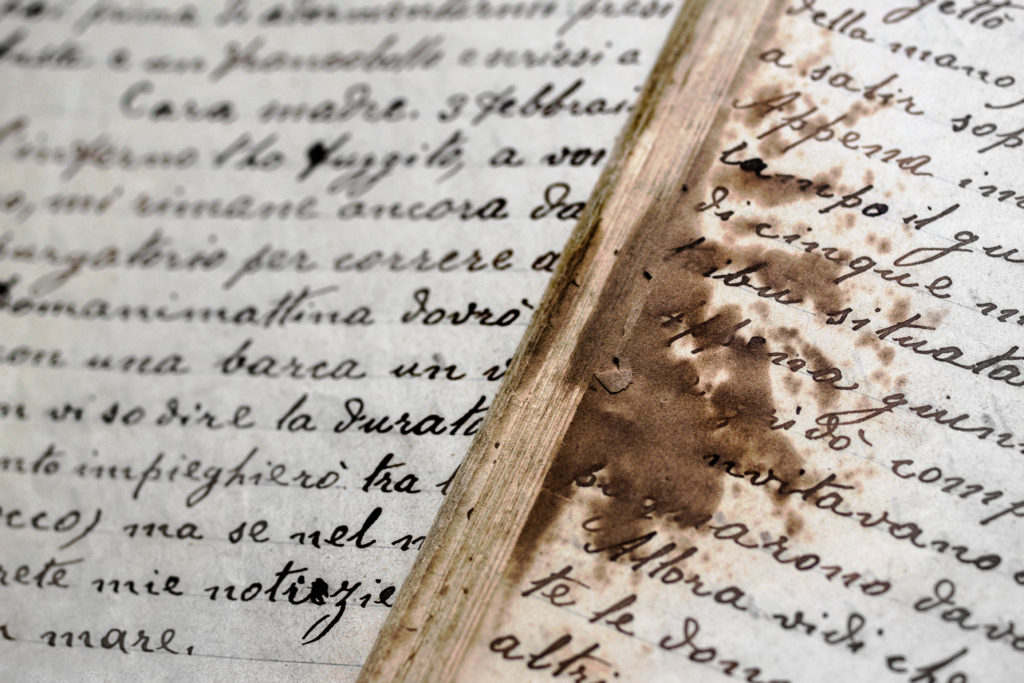 prima di addormentarmi presi
e un francobollo e scrissi a
Cara madre. 3 febbrai
l'inferno l'ho fuggito, a voi
mi rimane ancora da
purgatorio per correre a
domanimattina dovrò
con una barca un
vi so dire la durata
impiegherò tra
ma se nel
mie notizie
mare.
della mano,
a salir sop
Appena in
lampo il gu
di cinque m
tribu situata
appena giun
gridò comp
invitavano
davo
Allora vidi che
te le donn
altri